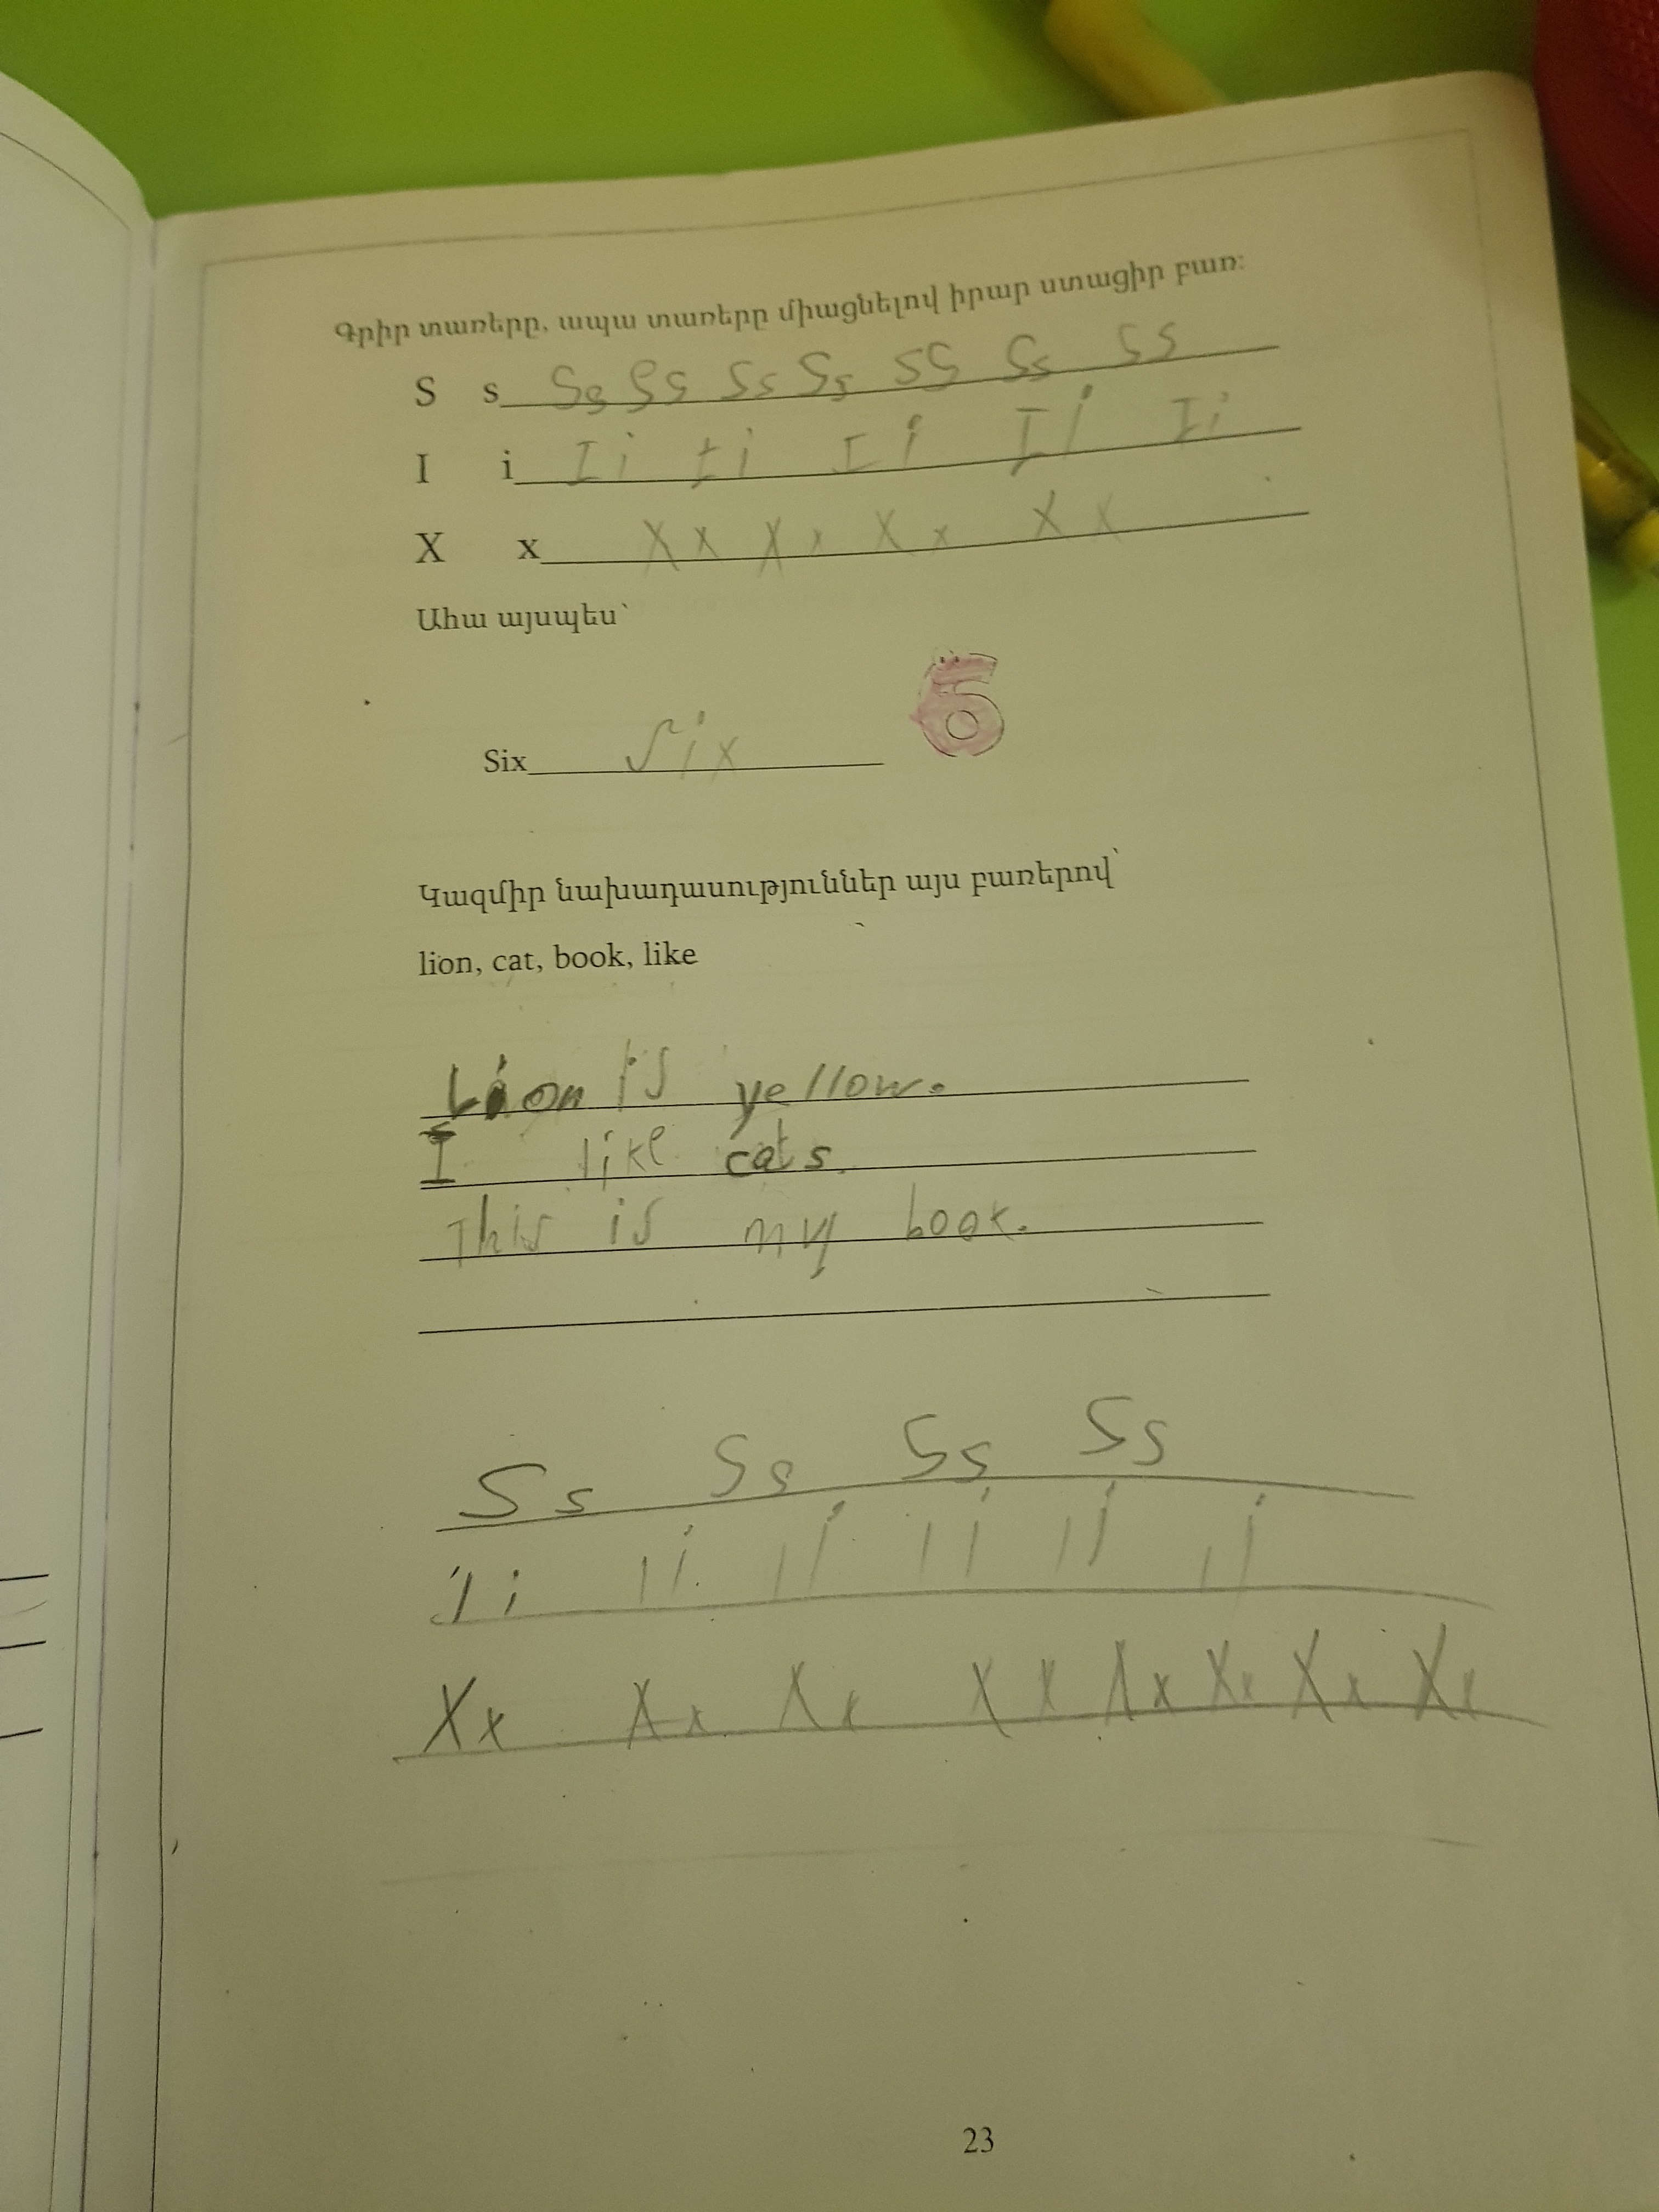 Գրիր տառերը, ապա տառերը միացնելով իրար ստացիր բառ։
S s Ss Ss Ss Ss SS Ss SS
I i Ii Ii Ii Ii Ii
X x Xx Xx Xx Xx
Ահա այսպես՝
Six Six 6
Կազմիր նախադասություններ այս բառերով՝
lion, cat, book, like
Lion is yellow.
I like cats.
This is my book.
Ss Ss Ss Ss
Ii Ii Ii Ii Ii Ii
Xx Xx Xx Xx Xx Xx Xx Xx
23